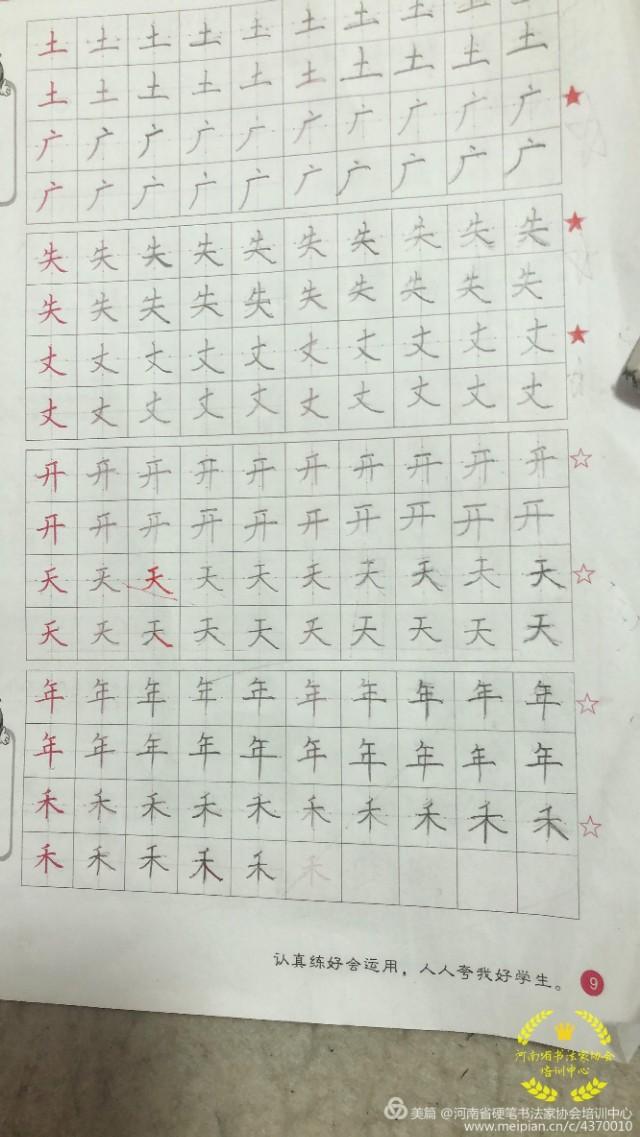 土土土土土土土土土土
土土土土土土土土土土
广广广广广广广广广广
广广广广广广广广广广
失失失失失失失失失失
失失失失失失失失失失
丈丈丈丈丈丈丈丈丈丈
丈丈丈丈丈丈丈丈丈丈
开开开开开开开开开开
开开开开开开开开开开
天天天天天天天天天天
天天天天天天天天天天
年年年年年年年年年年
年年年年年年年年年年
禾禾禾禾禾禾禾禾禾禾
禾禾禾禾禾禾
认真练好会运用，人人夸我好学生。
9
河南省书法家协会
培训中心
美篇 @河南省硬笔书法家协会培训中心
www.meipian.cn/c/4370010